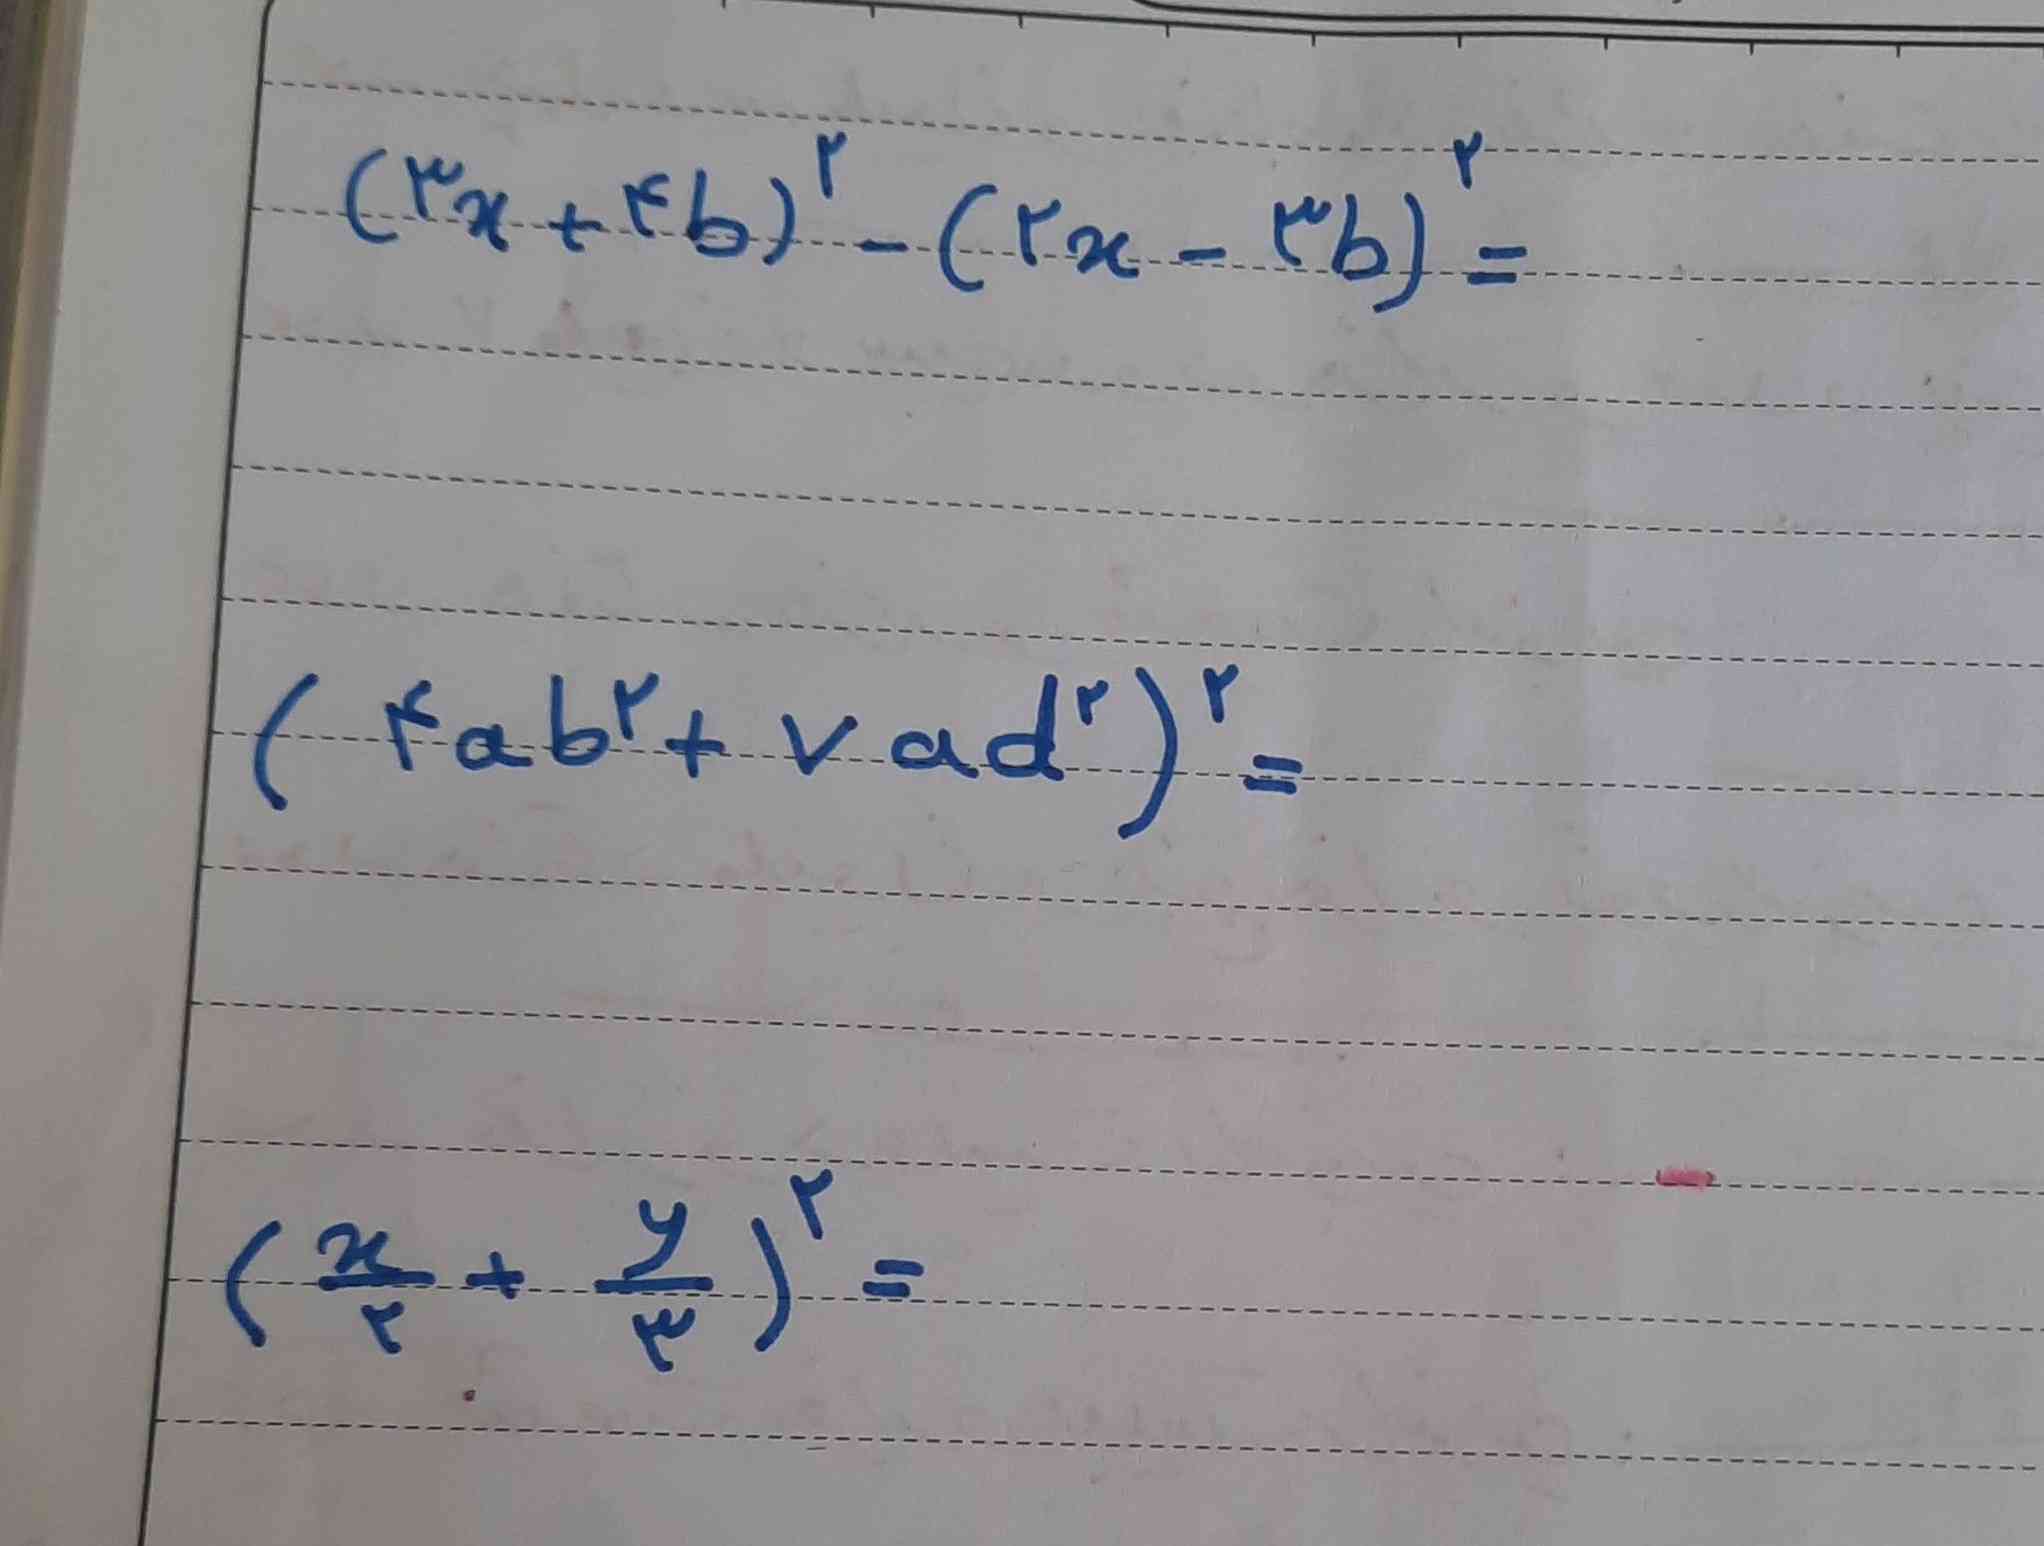 (۳x + ۴b)^۲ - (۲x - ۳b)^۲ =
(۴ab^۲ + ۷ad^۲)^۲ =
(x/۲ + y/۳)^۲ =